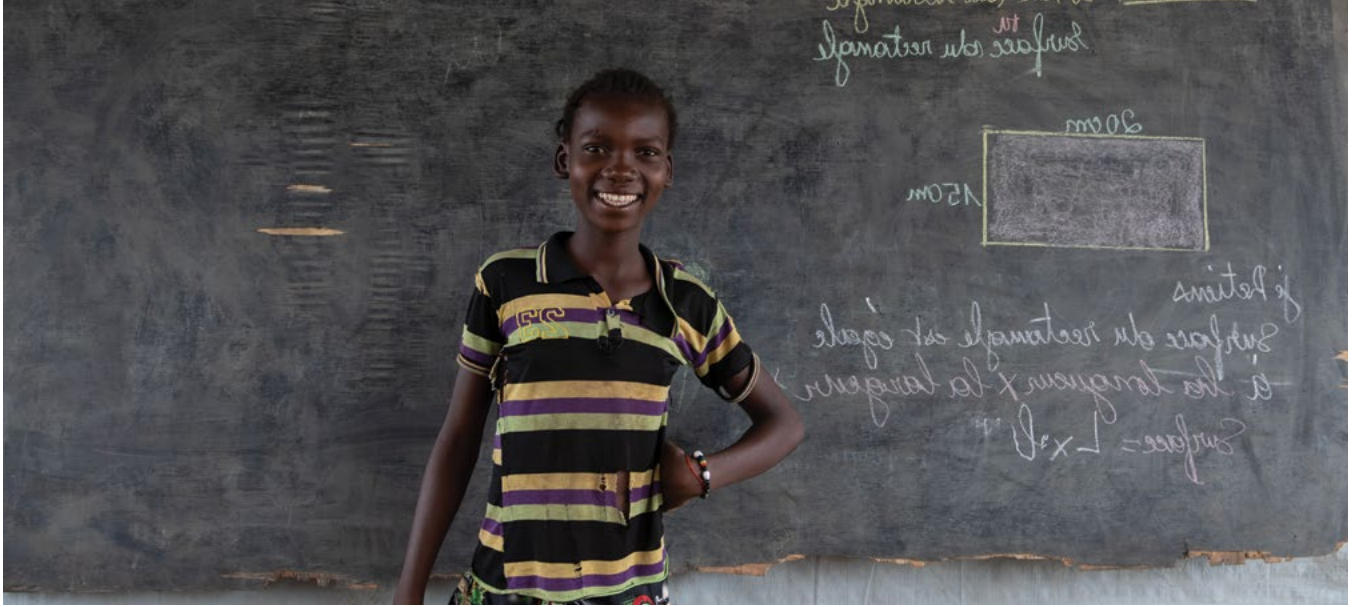 Surface du rectangle
20cm
15cm
je Retiens
Surface du rectangle est égale
à la longueur x la largeur
Surface = L x l